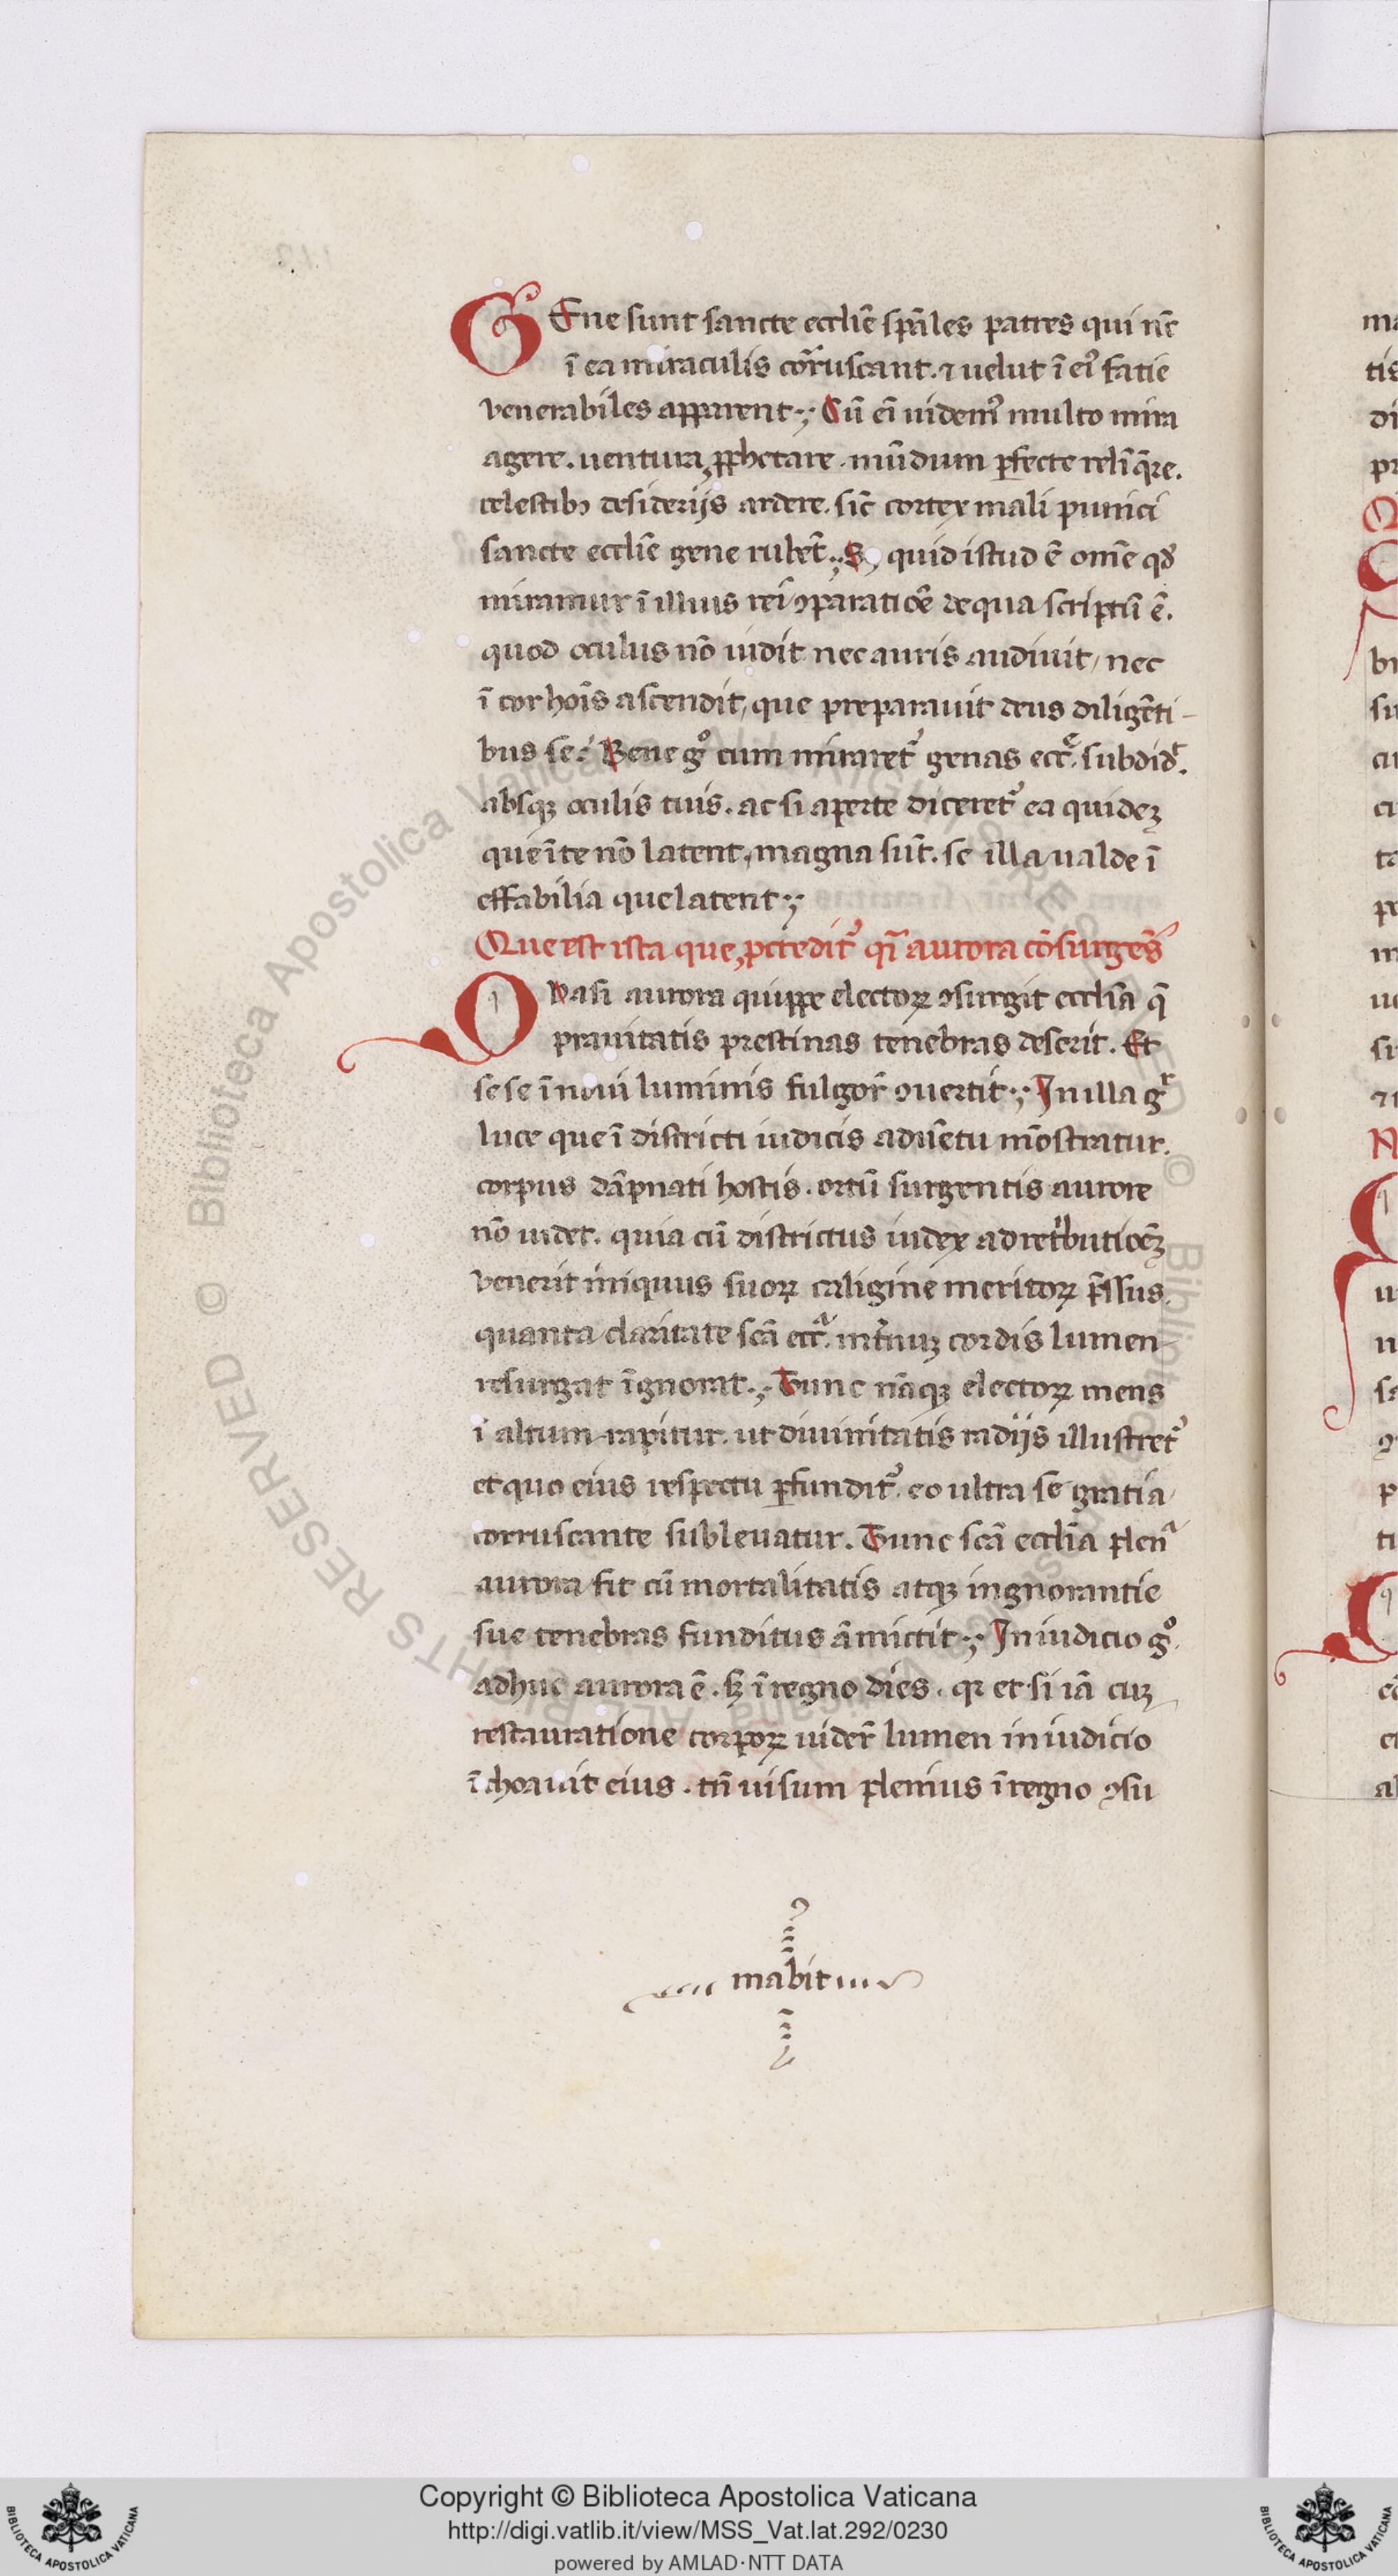 GEne sunt sancte eccłie sp̃ales patres qui nũc
ĩ ea miraculis cor̃ruscant. ⁊ uelut ĩ ei᷒ facie
venerabiles apparent. Cũ eĩ uidem᷒ multo mira
agere. uentura ꝓphetare. mũdum ꝑfecte relĩq̃re.
celestibꝫ desiderijs ardere. sič cortex mali punici
sancte eccłie gene rubẽt. Sꝫ quid istud ẽ om̃e qđ
miramur ĩ illius rei ꝯparatiõe de qua scriptũ ẽ.
quod oculus nõ uidit nec auris audiuit, nec
ĩ cor hoĩs ascendit, que preparauit deus diligẽti-
bus se. Bene gͦ cum miraret᷒ genas eccͤ. subdid̃.
absqꝫ oculis tuis. ac si aperte diceret᷒ ea quideꝫ
que ĩ te nõ latent, magna sũt. se illa ualde ĩ
effabilia que latent.
Que est ista que ꝓcedit᷒ q̃i aurora cõsurgẽs
Qvasi aurora quippe electoꝝ ꝯsurgit eccłia q̃
prauitatis prestinas tenebras deserit. Et
sese ĩ noui luminis fulgor̃ ꝯuertit. In illa gͬ
luce que ĩ districti iudicis aduẽtu mõstratur.
corpus dãpnati hostis. ortũ surgentis aurore
nõ uidet. quia cũ districtus iudex ad ret̃butiõeꝫ
venerit iniquus suoꝝ caligine meritoꝝ p̃ssus.
quanta claritate scã eccᵃ. int̃nuꝫ cordis lumen
resurgat ĩgnorat. Tunc nãqꝫ electoꝝ mens
ĩ altum rapitur. ut diuinitatis radijs illustret᷒
et quo eius respectu ꝑfundit᷒. eo ultra se gratia
corruscante subleuatur. Tunc scã eccłia plenᵃ
aurora fit cũ mortalitatis atqꝫ ingnorantie
sue tenebras funditus ãmictit. In iudicio gͦ.
adhuc aurora ẽ. sꝫ ĩ regno dies. qꝛ et si iã cuꝫ
restauratione corpoꝝ uider̃ lumen in iudicio
ĩchoauit eius. tñ uisum plenius ĩ regno ꝯsu
mabit
Copyright © Biblioteca Apostolica Vaticana
http://digi.vatlib.it/view/MSS_Vat.lat.292/0230
powered by AMLAD·NTT DATA